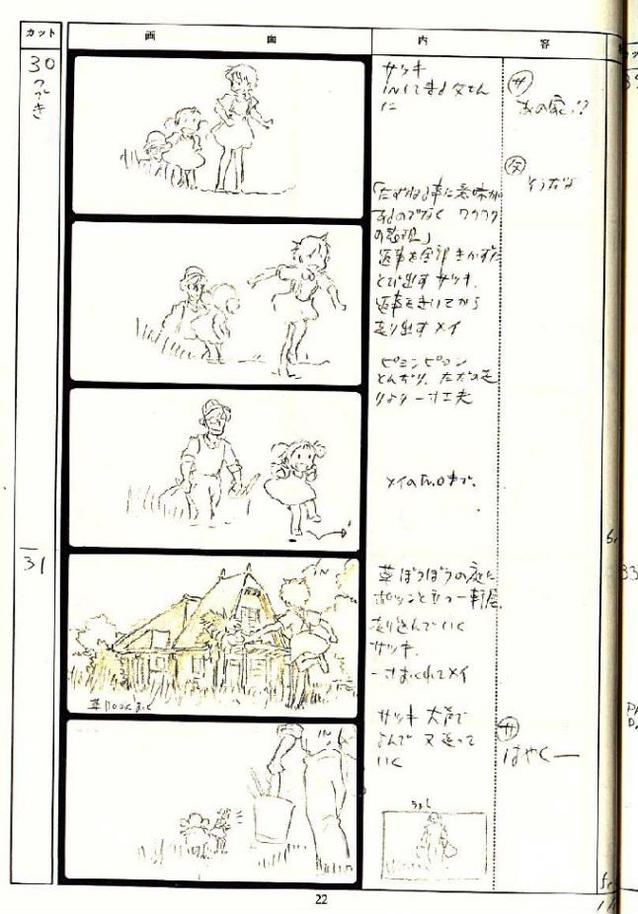 カット
画
面
内
容
30
つづき
サツキ
INしてきて父さん
に
サ
あの家!?
父
そうだよ
「たずねる事に意味が
あるのでなく ワクワク
の表現」
返事を全部きかずに
とび出すサツキ.
返事をきいてから
走り出すメイ
ピョンピョン
とんだり、ただの走
りより一寸工夫
メイのOUTまで、
31
IN
草ぼうぼうの庭に
ポツンと立つ一軒屋
走り込んでいく
サツキ.
一寸おくれてメイ
草BOOK
サツキ 大声で
よんで 又走って
いく
サ
はやくー
IN
22